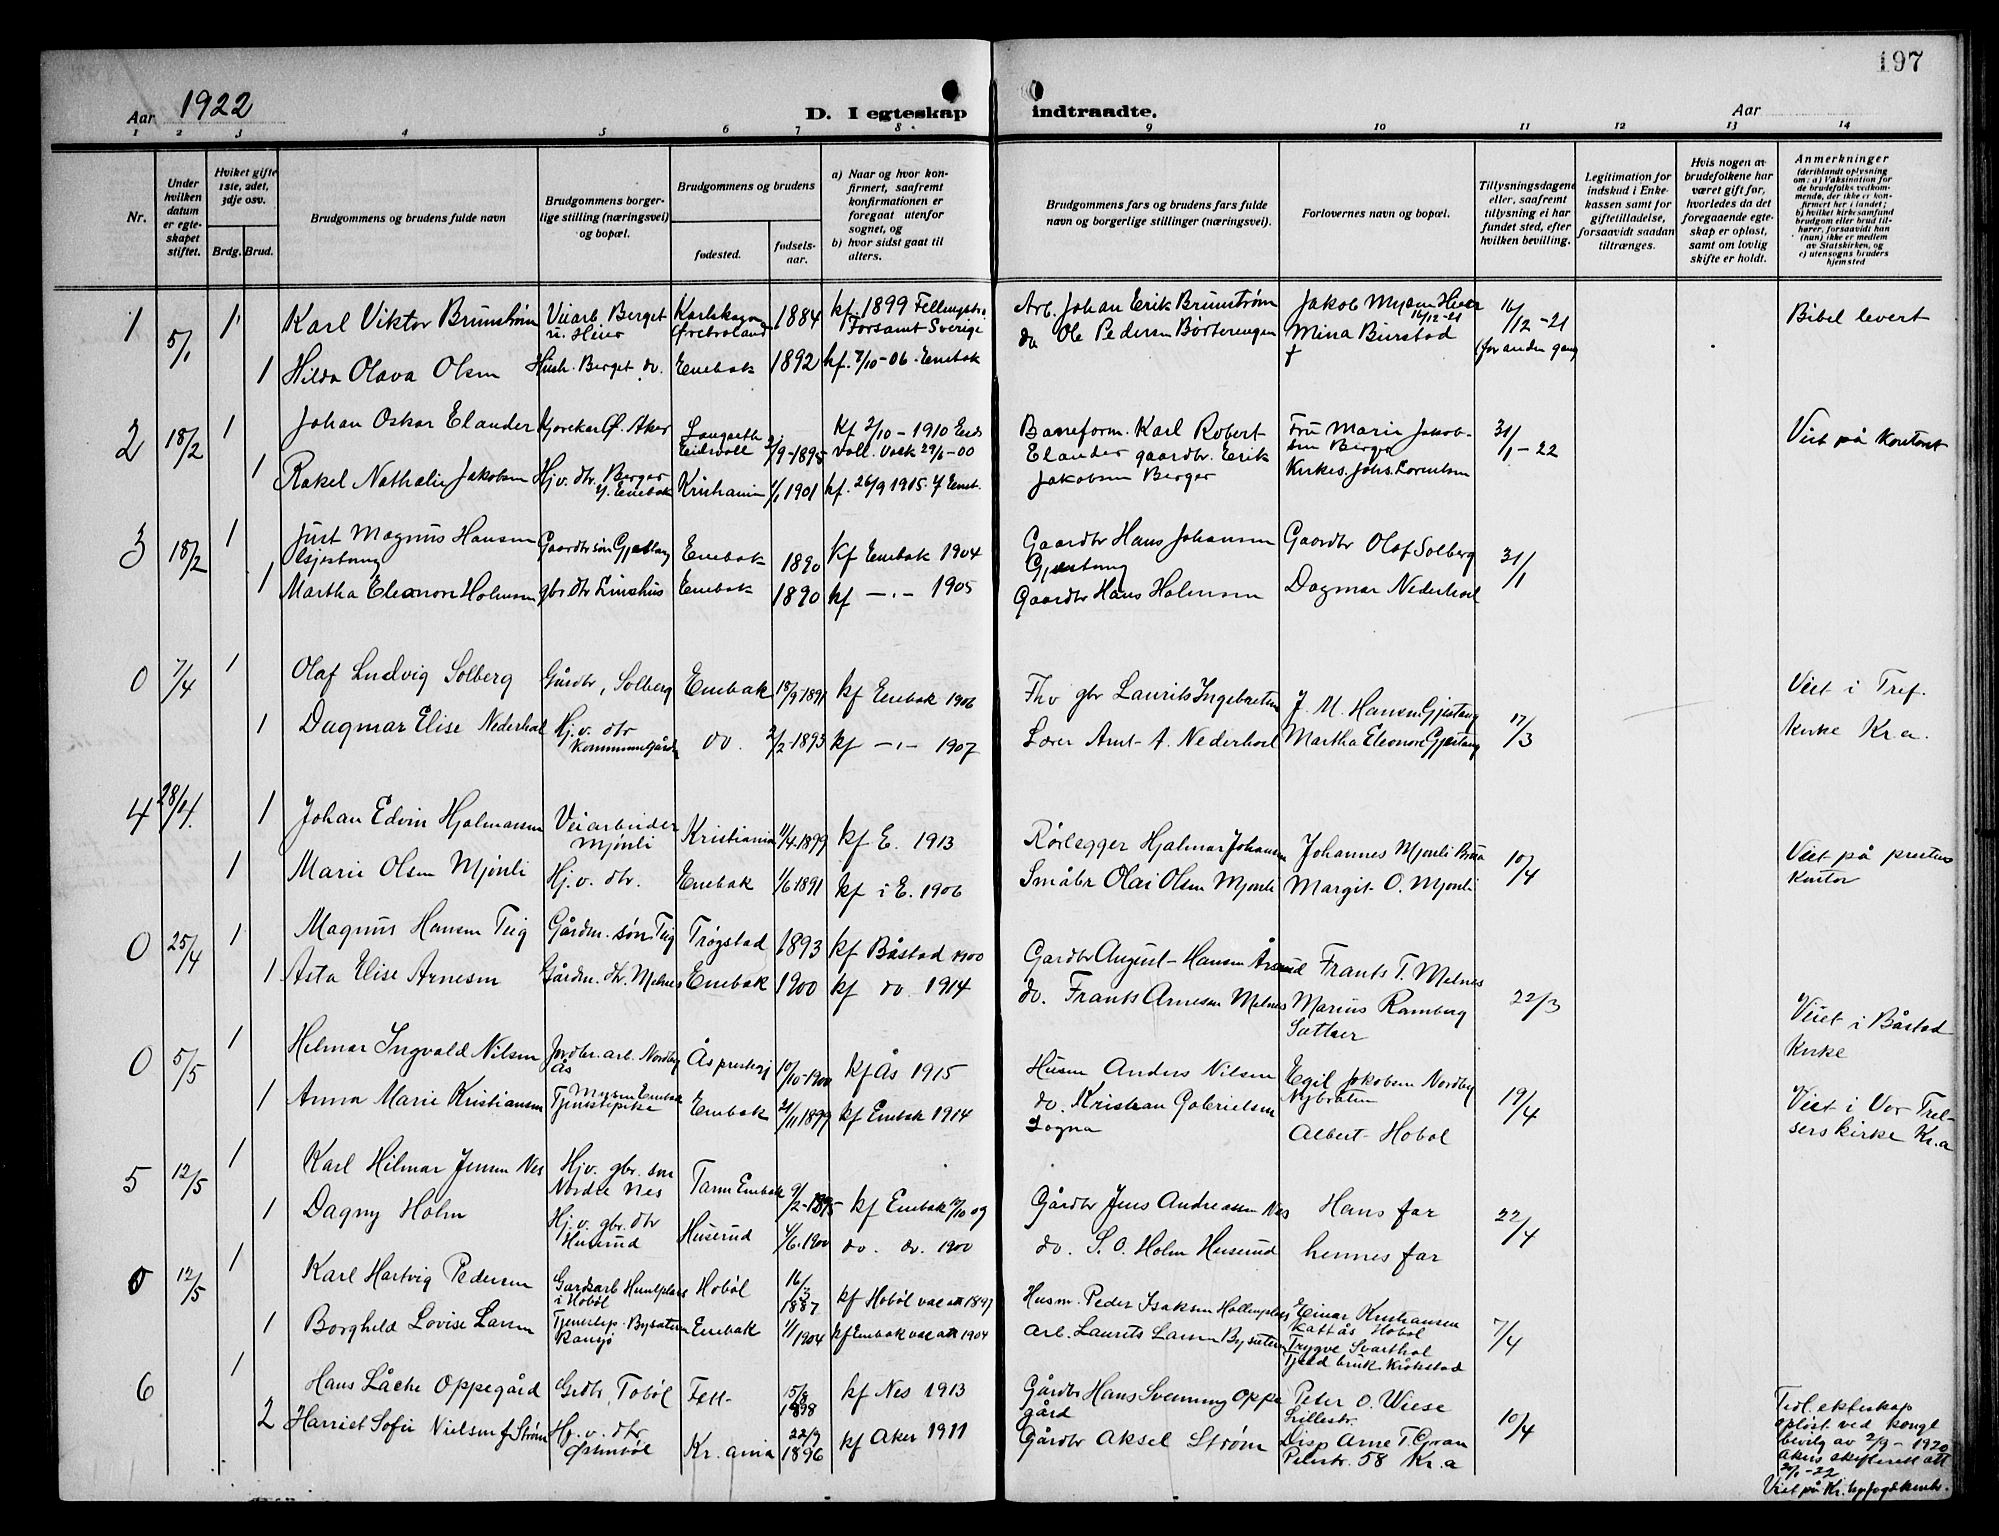 197
Aar 1922
D. I egteskap indtraadte.
Aar
1 2 3 4 5 6 7 8 9 10 11 12 13 14
Nr.
Under hvilken datum er egteskapet stiftet.
Hvilket gifte 1ste, 2det, 3dje osv.
Brdg. Brud.
Brudgommens og brudens fulde navn
Brudgommens borgerlige stilling (næringsvei) og bopæl.
Brudgommens og brudens
fødested.
fødselsaar.
a) Naar og hvor konfirmert, saafremt konfirmationen er foregaat utenfor sognet, og
b) hvor sidst gaat til alters.
Brudgommens fars og brudens fars fulde navn og borgerlige stillinger (næringsvei).
Forlovernes navn og bopæl.
Tillysningsdagene eller, saafremt tillysning ei har fundet sted, efter hvilken bevilling.
Legitimation for indskud i Enkekassen samt for giftetilladelse, forsaavidt saadan tiltrænges.
Hvis nogen av brudefolkene har været gift før, hvorledes da det foregaaende egteskap er opløst, samt om lovlig skifte er holdt.
Anmerkninger
(deriblandt oplysning om: a) Vaksination for de brudefolks vedkommende, der ikke er konfirmert her i landet;
b) hvilket kirkesamfund brudgom eller brud tilhører, forsaavidt han (hun) ikke er medlem av Statskirken, og
c) utensogns bruders hjemsted
1 5/1 1 Karl Viktor Brunstrøm Veiarb. Berget u. Heier Karlskoga Ørebroland 1884 kf 1899 Fellingsbro Forsamt Sverige Arb. Johan Erik Brunstrøm Jakob Mysen Heier 16/12-21 16/12-21 Bibel levert
1 Hilda Olava Olsen Hush. Berget do. Enebak 1892 kf. 7/10-06. Enebak do Ole Pedersen Børterengen Mina Burstad (for anden gang)
2 18/2 1 Johan Oskar Elander Ø. Aker Eidsvoll 2/9-1895 Kf 2/10-1910 Eidsvoll. Vack 29/6-00 Baneform. Karl Robert Elander Fru Marie Jakobsen Berger 31/1-22 Viet på kontoret
1 Rakel Nathalie Jakobsen Hj.v. dtr. Berger Y. Enebak Kristiania 1/1 1901 kf. 26/9 1915. Y Eneb. gaardbr. Erik Jakobsen Berger Kirkes. Johs. Lorentsen
3 18/2 1 Just Magnus Hansen Gjestang Gaardbr søn Gjestang Enebak 1890 Kf Enebak 1904 Gaardbr Hans Johansen Gjestang Gaardbr Olaf Solberg 31/1
1 Martha Eleonore Holmsen gbr dtr Enebak 1890 kf -"- 1905 Gaardbr Hans Holmsen Dagmar Nederhoel
0 7/4 1 Olaf Ludvig Solberg Gårdbr, Solberg Enebak 18/9-1891 kf Enebak 1906 Fhv gbr Laurits Ingebretsen J. M. Hansen Gjestang 17/3 Viet i Tref. kirke Kr.a.
1 Dagmar Elise Nederhoel Hj.v. dtr Kommunegården do. 2/2-1893 kf -"- 1907 Lærer Ant. A. Nederhoel Martha Eleonore Gjestang
4 28/4. 1 Johan Edvin Hjalmarsen Veiarbeider Mjønli Kristiania 11/4-1899 kf E. 1913 Rørlegger Hjalmar Johansen Johannes Mjønli 10/4 Viet på prestens kontor
1 Marie Olsen Mjønli Hj.v. dtr. Enebak 1/6-1891 kf i E. 1906 Småbr Olai Olsen Mjønli Margit O. Mjønli
0 25/4 1 Magnus Hansen Teig Gårdm. søn Teig Trøgstad 1893 kf Båstad 1900 Gardbr August Hansen Frants T. Melnes 22/3 Viet i Båstad kirke
1 Asta Elise Arnesen Gårdm. dtr. Melnes Enebak 1900 kf do. 1914 do. Frants Arnesen Melnes Marius Ramberg Sætser
0 5/5 1 Helmar Ingvald Nilsen Jordbr. arb. Nordby Ås Ås prestegj 10/10-1900 kf Ås 1915 Husm Anders Nilsen Egil Jakobsen Nordby Nybråten 19/4 Viet i Vor Frelsers kirke Kr.a
1 Anna Marie Kristiansen Mysen Enebak Tjenestepike Enebak 21/11 1899 kf Enebak 1914 do. Kristian Gabrielsen Sogna Albert Hobøl
5 12/5 1 Karl Hilmar Jensen Nes Hj.v. gbr. søn Nordre Nes Tarm Enebak 9/2-1895 kf Enebak 12/10 09 Gårdbr Jens Andreassen Nes Hans far 22/4
1 Dagny Holm Hj.v. gbr. dtr Huserud Huserud 4/6-1900 do. do. 1900 do. S. O. Holm Huserud hennes far
0 12/5 1 Karl Hartvig Pedersen Gardsarb i Hobøl Hobøl 16/3 1887 kf Hobøl Husm. Peder Isaksen Einar Kristiansen Kattås Hobøl 7/4
1 Borghild Lovise Larsen Enebak 1/1 1904 kf Enebak 1904 arb. Laurits Larsen Trygve Svarthol Tjeld bruk Kråkstad
6 1 Hans Låche Oppegård Grdbr, Tobøl Fett 15/8 1898 kf Nes 1913 Gårdbr Hans Svenning Oppegård Peter O. Wiese Lillestr. 10/4 Tidl. ekteskap opløst ved kongl bevilg av 2/9-1920
2 Harriet Sofie Nielsen f. Strøm Hj.v. dtr Østenbøl Kr.ania 22/9 1896 kf Aker 1911 Gårdbr Aksel Strøm Disp Arne T. Gran Pilestr. 58 Kr.a Akers skifterett att 20/1-22
Viet på Kr. byfogdkontr.